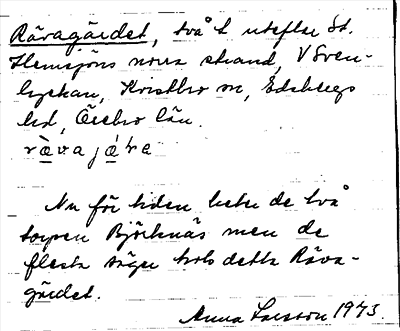 Rävagärdet, två t utefter St.
Hemsjöns norra strand, V Sven-
lyckan, Kvistbro sn, Edsbergs
hd, Örebro län.
ràvajáṛe
Nu för tiden heter de två
torpen Björknäs men de
flesta säger trots detta Räva-
gärdet.
Anna Larsson 1973.